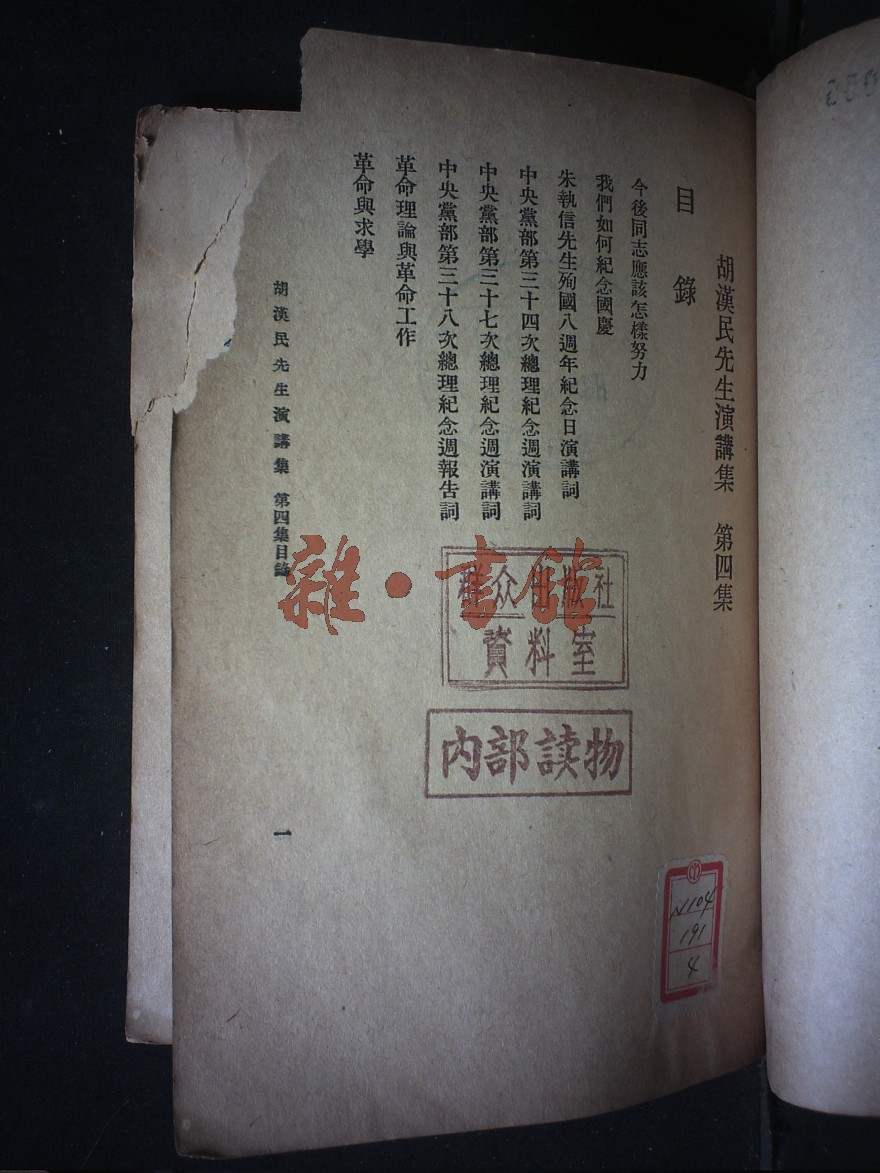 胡漢民先生演講集 第四集
目錄
今後同志應該怎樣努力
我們如何紀念國慶
朱執信先生殉國八週年紀念日演講詞
中央黨部第三十四次總理紀念週演講詞
中央黨部第三十七次總理紀念週演講詞
中央黨部第三十八次總理紀念週報告詞
革命理論與革命工作
革命與求學
胡漢民先生演講集 第四集目錄
一
雜·書館
群众出版社
資料室
内部读物
N104
191
4